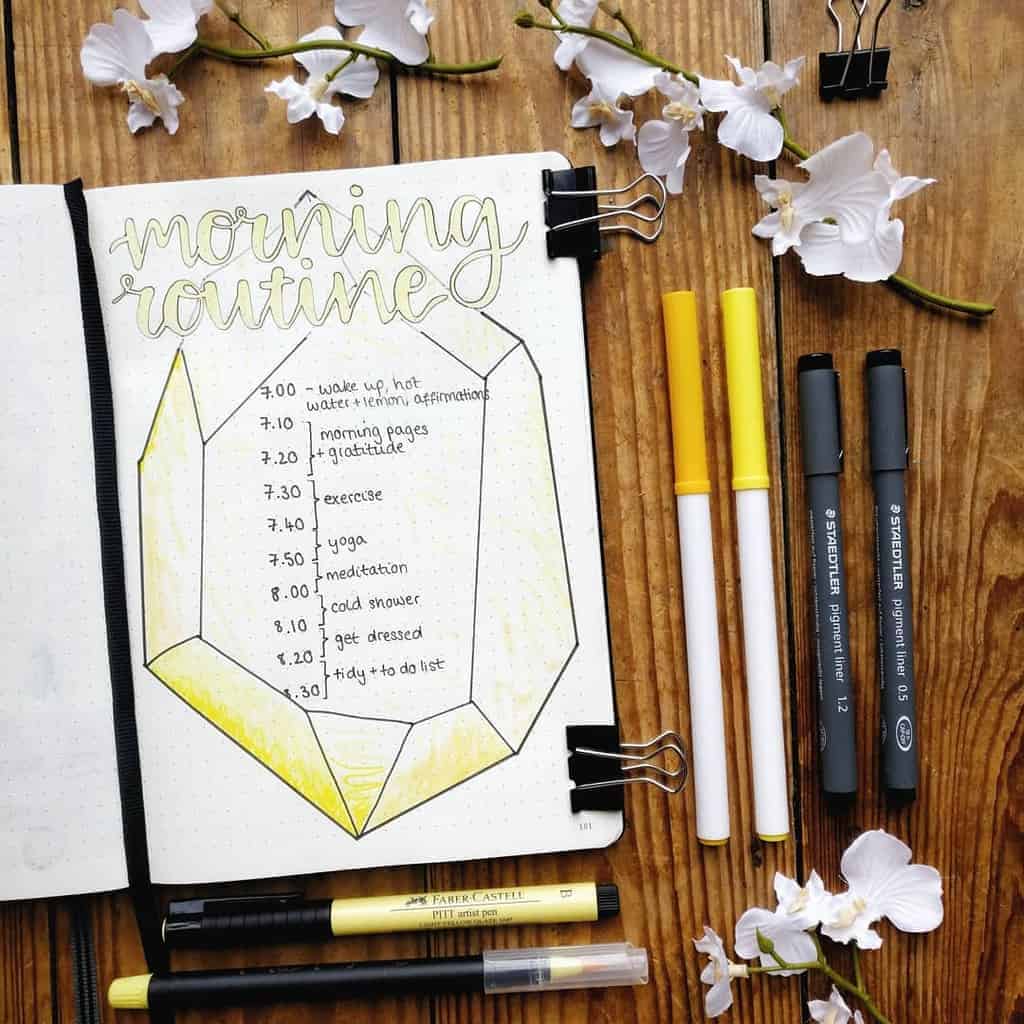 morning
routine
7.00 - wake up, hot
water + lemon, affirmations
7.10
morning pages
7.20 + gratitude
7.30
exercise
7.40
yoga
7.50
meditation
8.00
cold shower
8.10
get dressed
8.20
tidy + to do list
8.30
181
STAEDTLER pigment liner 1.2
STAEDTLER pigment liner 0.5
FABER-CASTELL
PITT artist pen B
LIGHT YELLOW GLAZE 104*